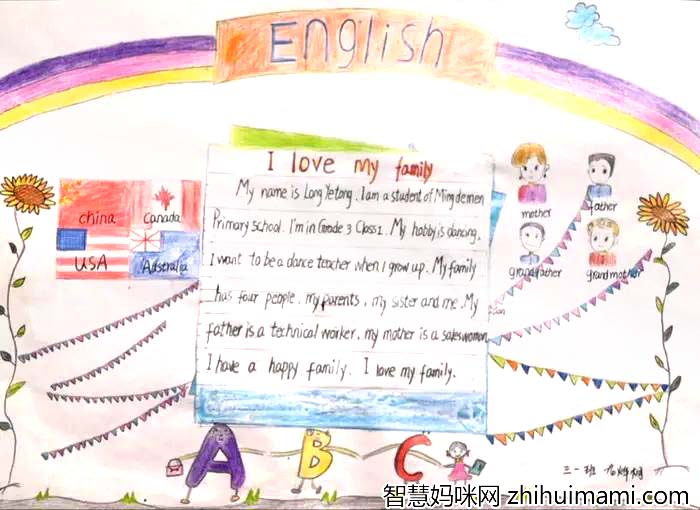 English
I love my family
My name is Long Yetong. I am a student of Mingdemen
Primary school. I'm in Grade 3 Class 1. My hobby is dancing.
I want to be a dance teacher when I grow up. My family
has four people. my parents, my sister and me. My
father is a technical worker, my mother is a saleswoman
I have a happy family. I love my family.
china
Canada
USA
Australia
mother
father
grandfather
grandmother
A B C
三一班
智慧妈咪网 zhihuimami.com